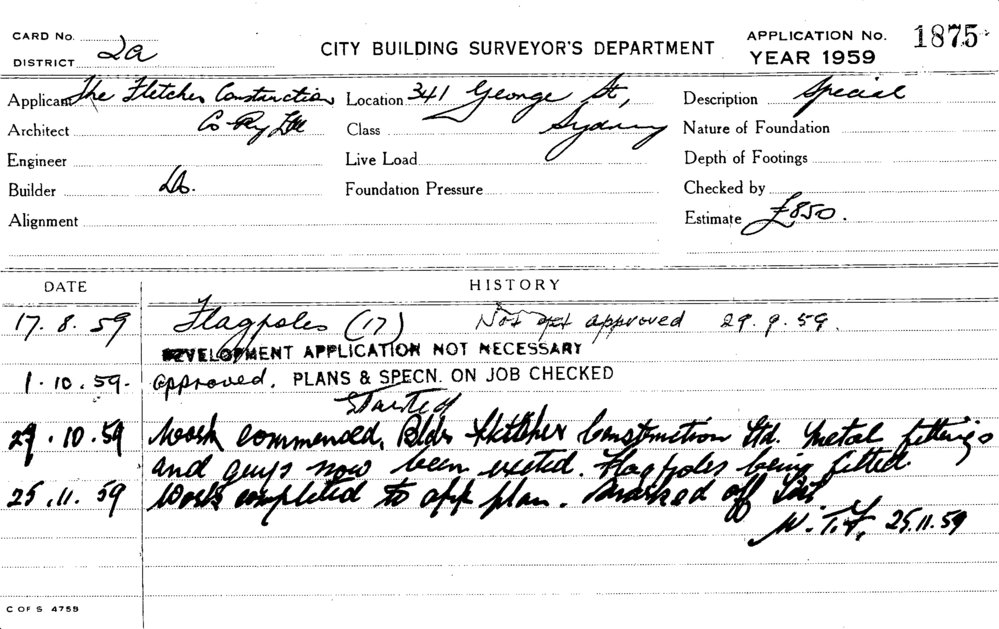 CARD No.
DISTRICT 2a
CITY BUILDING SURVEYOR'S DEPARTMENT
APPLICATION No. 1875
YEAR 1959
Applicant The Fletcher Construction
Architect Co Pty Ltd
Engineer
Builder Do.
Alignment
Location 341 George St,
Class Sydney
Live Load
Foundation Pressure
Description Special
Nature of Foundation
Depth of Footings
Checked by
Estimate £850.
DATE HISTORY
17. 8. 59 Flagpoles (17) Not yet approved 29. 9. 59.
DEVELOPMENT APPLICATION NOT NECESSARY
1. 10. 59. approved. PLANS & SPECN. ON JOB CHECKED
Started
29. 10. 59 Work commenced. Bldr Fletcher Construction Ltd. Metal fittings
and guys now been erected. Flagpoles being fitted.
25. 11. 59 Work completed to app plan. Marked off list.
W. T. F. 25.11.59
C OF S 4759